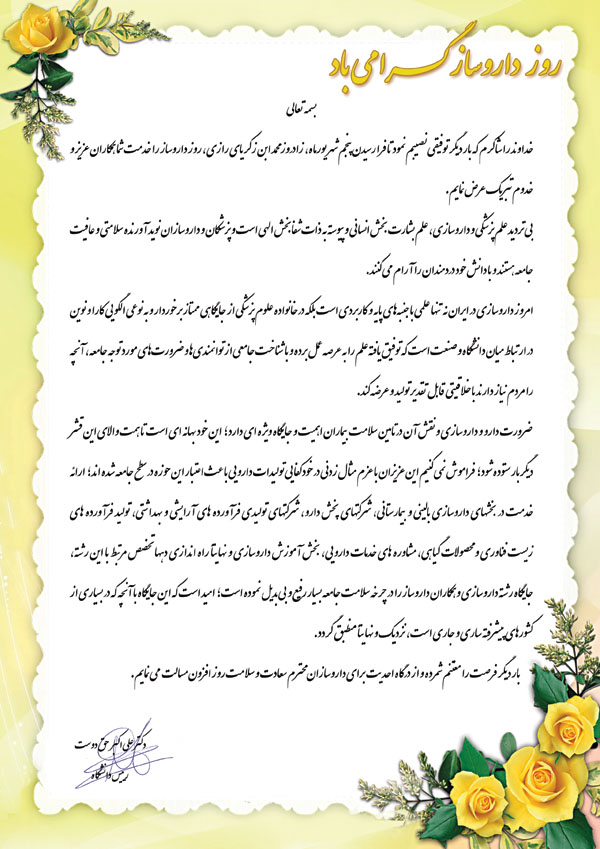 روز داروساز گرامی باد
بسمه تعالی
خداوند را شاکرم که بار دیگر توفیقی نصیبم نمود تا فرارسیدن پنجم شهریورماه، زادروز محمد ابن زکریای رازی، روز داروساز را خدمت شما همکاران عزیز و
خدوم تبریک عرض نمایم.
بی تردید علم پزشکی و داروسازی، علم بشارت بخش انسانی و پیوسته به ذات شفابخش الهی است و پزشکان و داروسازان نوید آورنده سلامتی و عافیت
جامعه هستند و با دانش خود دردمندان را آرام می کنند.
امروز داروسازی در ایران نه تنها علمی با جنبه های پایه و کاربردی است بلکه در خانواده علوم پزشکی از جایگاهی ممتاز برخوردار و به نوعی الگویی کارا و نوین
در ارتباط میان دانشگاه و صنعت است که توفیق یافته علم را به عرصه عمل برده و با شناخت جامعی از توانمندی ها و ضرورت های مورد توجه جامعه، آنچه
را مردم نیاز دارند با خلاقیتی قابل تقدیر تولید و عرضه کند.
ضرورت دارو و داروسازی و نقش آن در تامین سلامت بیماران اهمیت و جایگاه ویژه ای دارد؛ این خود بهانه ای است تا همت والای این قشر
دیگر بار ستوده شود؛ فراموش نمی کنیم این عزیزان با عزم مثال زدنی در خودکفایی تولیدات دارویی باعث اعتبار این حوزه در سطح جامعه شده اند؛ ارائه
خدمت در بخشهای داروسازی بالینی و بیمارستانی، شرکتهای پخش دارو، شرکتهای تولیدی فرآورده های آرایشی و بهداشتی، تولید فرآورده های
زیست فناوری و محصولات گیاهی، مشاوره های خدمات دارویی، بخش آموزش داروسازی و نهایتا راه اندازی دهها تخصص مرتبط با این رشته،
جایگاه رشته داروسازی و همکاران داروساز را در چرخه سلامت جامعه بسیار رفیع و بی بدیل نموده است؛ امید است که این جایگاه با آنچه که در بسیاری از
کشورهای پیشرفته ساری و جاری است، نزدیک و نهایتا منطبق گردد.
بار دیگر فرصت را مغتنم شمرده و از درگاه احدیت برای داروسازان محترم سعادت و سلامت روز افزون مسالت می نمایم.
دکتر علی اکبر حق دوست
رییس دانشگاه